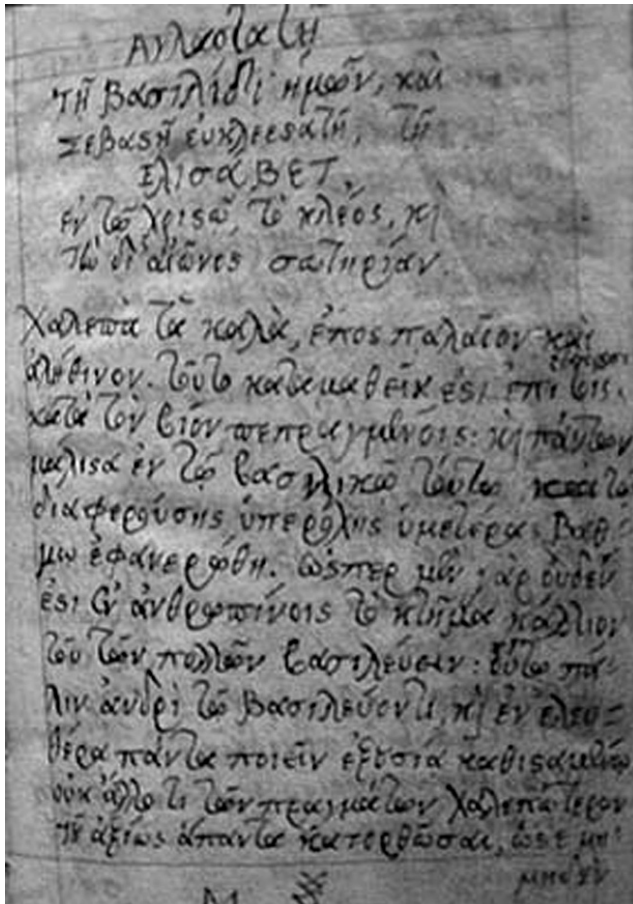 τῇ Βασιλίδι ἡμῶν, καὶ
Σεβαςῇ εὐκλεεςατῇ, τῇ
Ελισάβετ,
ἐν τῷ Χριςῷ, τὸ κλέος, κὶ
σωτηρίαν.
Χαλεπὰ τὰ καλὰ, ἔπος παλαῖον καὶ
ἀλήθινον. τοῦτο καταμαθεῖν ἐςι ἐπὶ τοις
κατὰ τὸν βιόν πεπραγμένοις: κὶ πάντων
μάλιςα ἐν τῷ βασιλικῷ τούτῳ
διαφερούσης ὑμετέρας βαθ-
μῳ ἐφανερώθη. ὥςπερ μὲν γὰρ οὐδὲν
ἐςι ἐν ἀνθρωπίνοις τὸ κτῆμα κάλλιον
τοῦ τῶν πολλῶν βασιλεύειν: οὕτω πά-
λιν ἀνδρὶ τῷ βασιλεύοντι, κὶ ἐν ἐλευ-
θέρᾳ πάντα ποιεῖν ἐξυσίᾳ
οὐκ ἄλλο τι τῶν πραγμάτων χαλεπώτερον
ἀξίως ἅπαντα κατορθῶσαι, ὥςε μη-